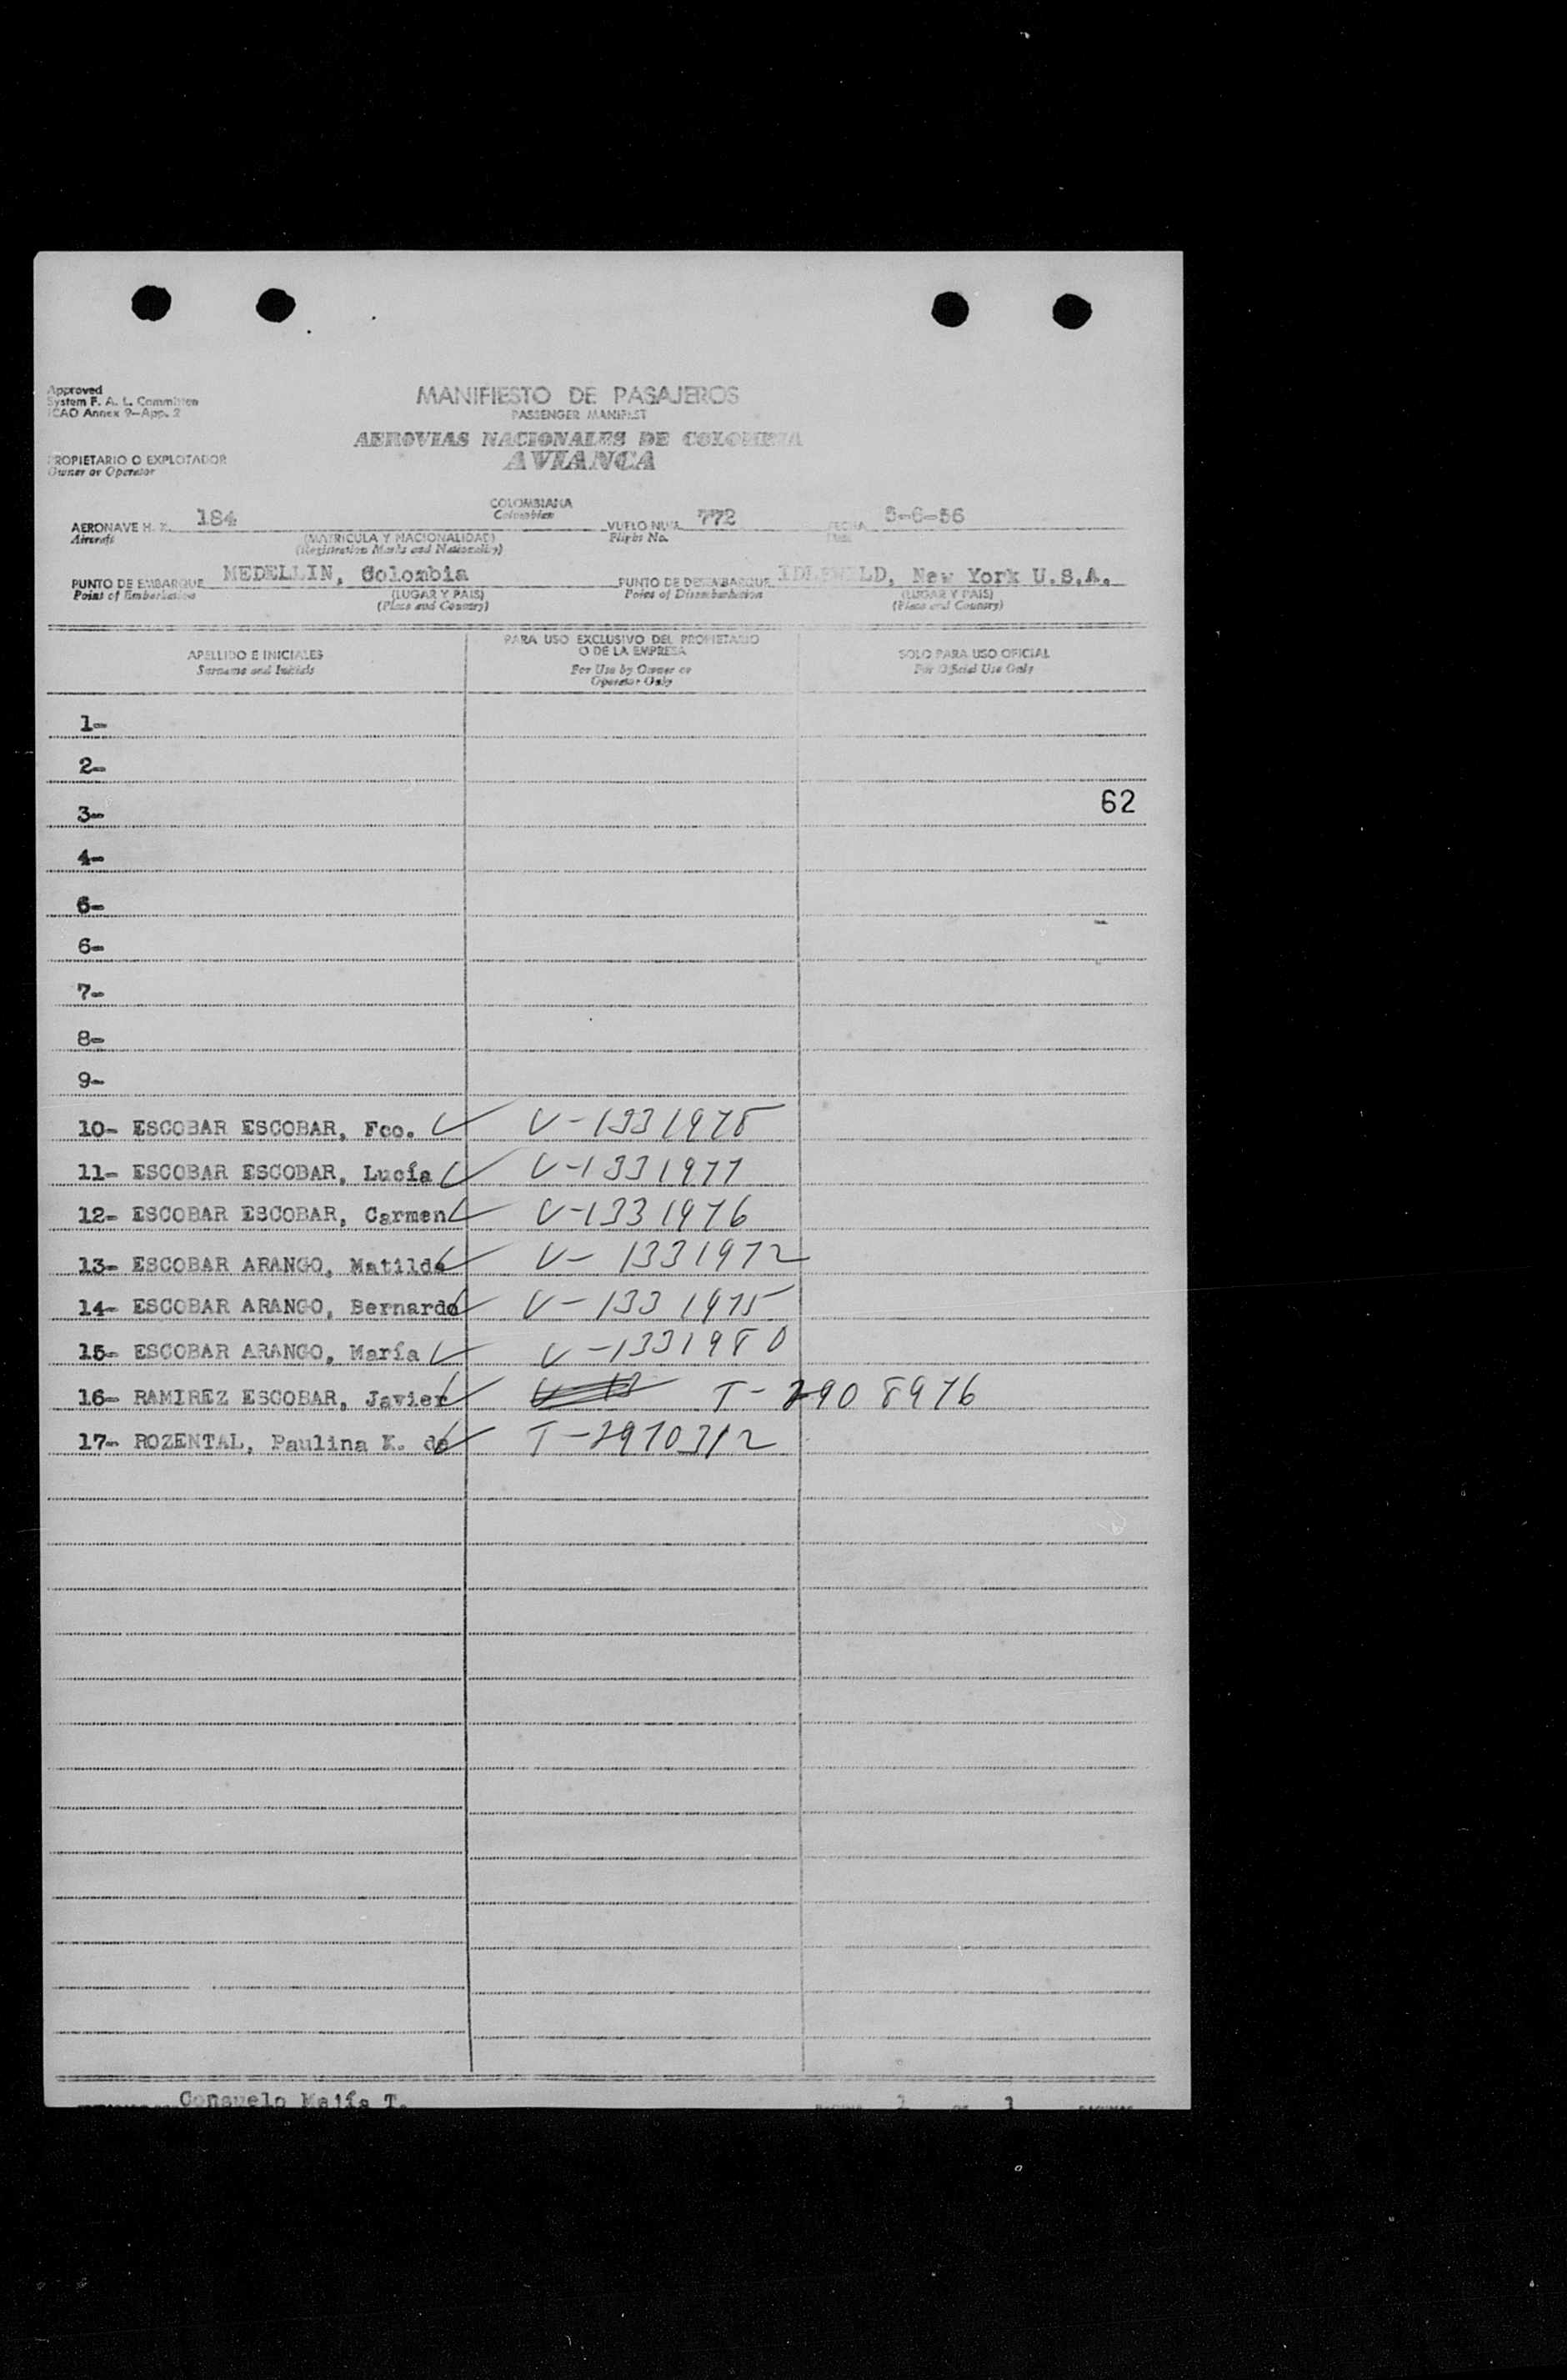 Approved
System F. A. L. Committee
ICAO Annex 9-App. 2
MANIFIESTO DE PASAJEROS
PASSENGER MANIFEST
AEROVIAS NACIONALES DE COLOMBIA
AVIANCA
PROPIETARIO O EXPLOTADOR
Owner or Operator
AERONAVE H. K. 184 COLOMBIANA VUELO NUM. 772 FECHA 5-6-56
Aircraft (MATRICULA Y NACIONALIDAD) Colombian Flight No.
(Registration Marks and Nationality)
PUNTO DE EMBARQUE MEDELLIN, Colombia PUNTO DE DESEMBARQUE IDLEWILD, New York U.S.A.
Point of Embarkation (LUGAR Y PAIS) Point of Disembarkation (LUGAR Y PAIS)
(Place and Country) (Place and Country)
APELLIDO E INICIALES PARA USO EXCLUSIVO DEL PROPIETARIO O DE LA EMPRESA SOLO PARA USO OFICIAL
Surname and Initials For Use by Owner or Operator Only For Official Use Only
1-
2-
3- 62
4-
5-
6-
7-
8-
9-
10- ESCOBAR ESCOBAR, Fco. V-1331978
11- ESCOBAR ESCOBAR, Lucía V-1331977
12- ESCOBAR ESCOBAR, Carmen V-1331976
13- ESCOBAR ARANGO, Matilde V-1331972
14- ESCOBAR ARANGO, Bernardo V-1331975
15- ESCOBAR ARANGO, María V-1331980
16- RAMIREZ ESCOBAR, Javier T-2908976
17- ROZENTAL, Paulina K. de T-2970312
Consuelo Mejía T. 1 DE 1